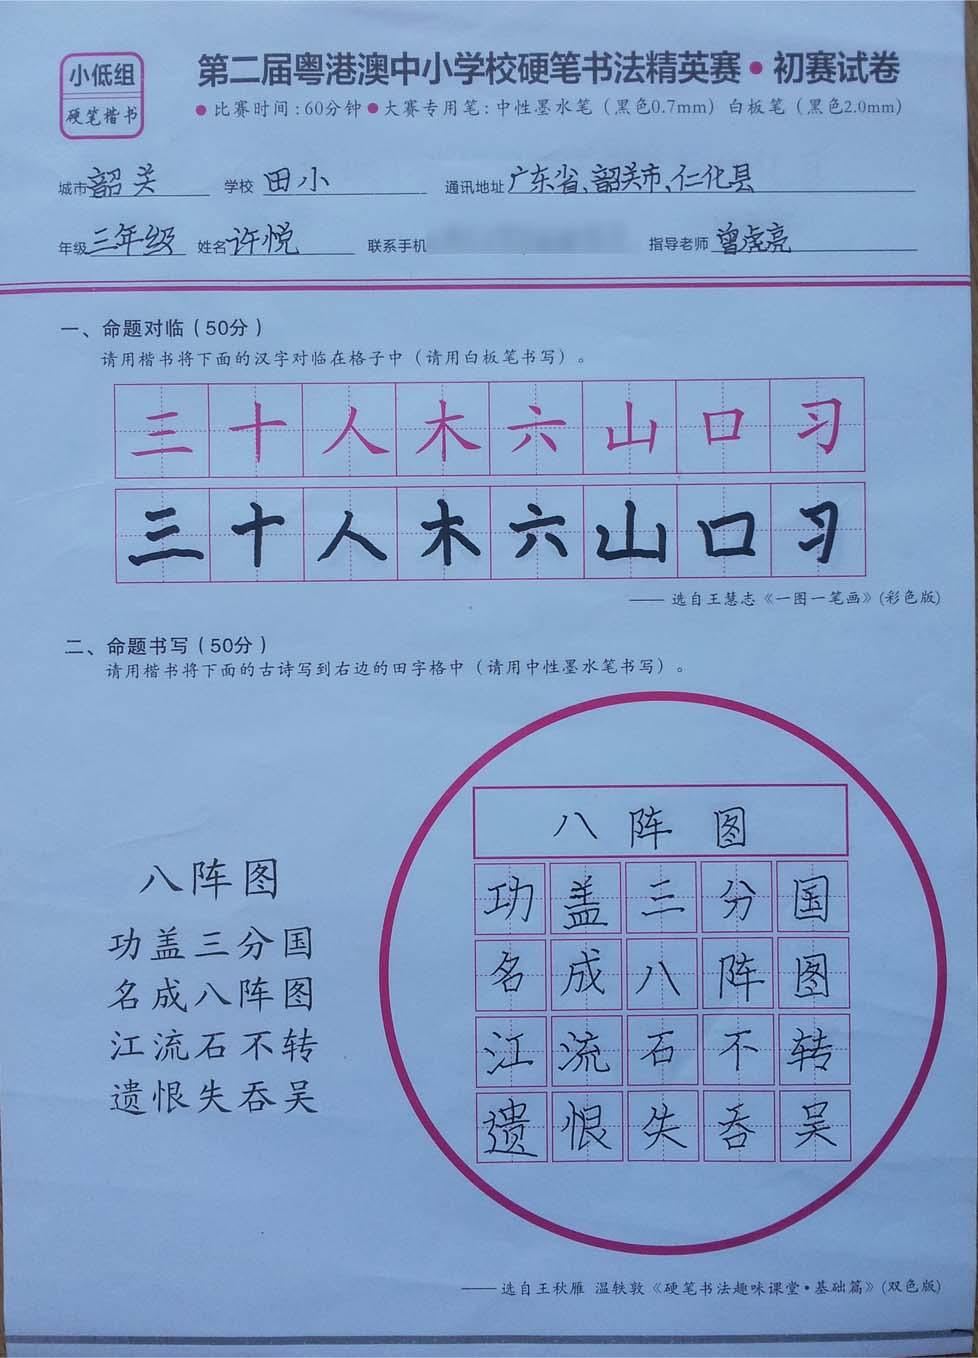 小低组
硬笔楷书
第二届粤港澳中小学校硬笔书法精英赛•初赛试卷
●比赛时间:60分钟●大赛专用笔:中性墨水笔(黑色0.7mm) 白板笔(黑色2.0mm)
城市 韶关 学校 田小 通讯地址 广东省、韶关市、仁化县
年级 三年级 姓名 许悦 联系手机 指导老师 曾虎亮
一、命题对临(50分)
请用楷书将下面的汉字对临在格子中(请用白板笔书写)。
三十人木六山口习
三十人木六山口习
—— 选自王慧志《一图一笔画》(彩色版)
二、命题书写(50分)
请用楷书将下面的古诗写到右边的田字格中(请用中性墨水笔书写)。
八阵图
功盖三分国
名成八阵图
江流石不转
遗恨失吞吴
八阵图
功盖三分国
名成八阵图
江流石不转
遗恨失吞吴
—— 选自王秋雁 温轶敦《硬笔书法趣味课堂•基础篇》(双色版)